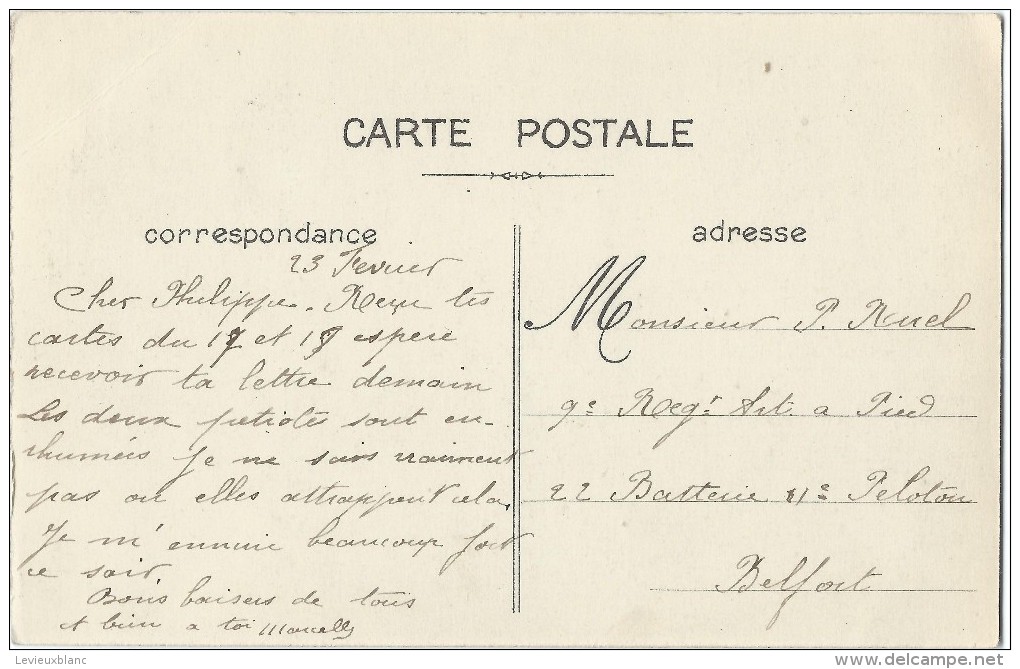 CARTE POSTALE
correspondance
23 Fevrier
Cher Philippe. Reçu tes
cartes du 17 et 18 espere
recevoir ta lettre demain
Les deux petiotes sont en-
rhumées je ne sais vraiment
pas ou elles attrappent cela.
Je m'ennuie beaucoup fort
ce soir
Bons baisers de tous
et bien a toi Marcelle
adresse
Monsieur P. Ruel
9e Regt Art a Pied
22 Batterie 11e Peloton
Belfort
Levieuxblanc
www.delcampe.net